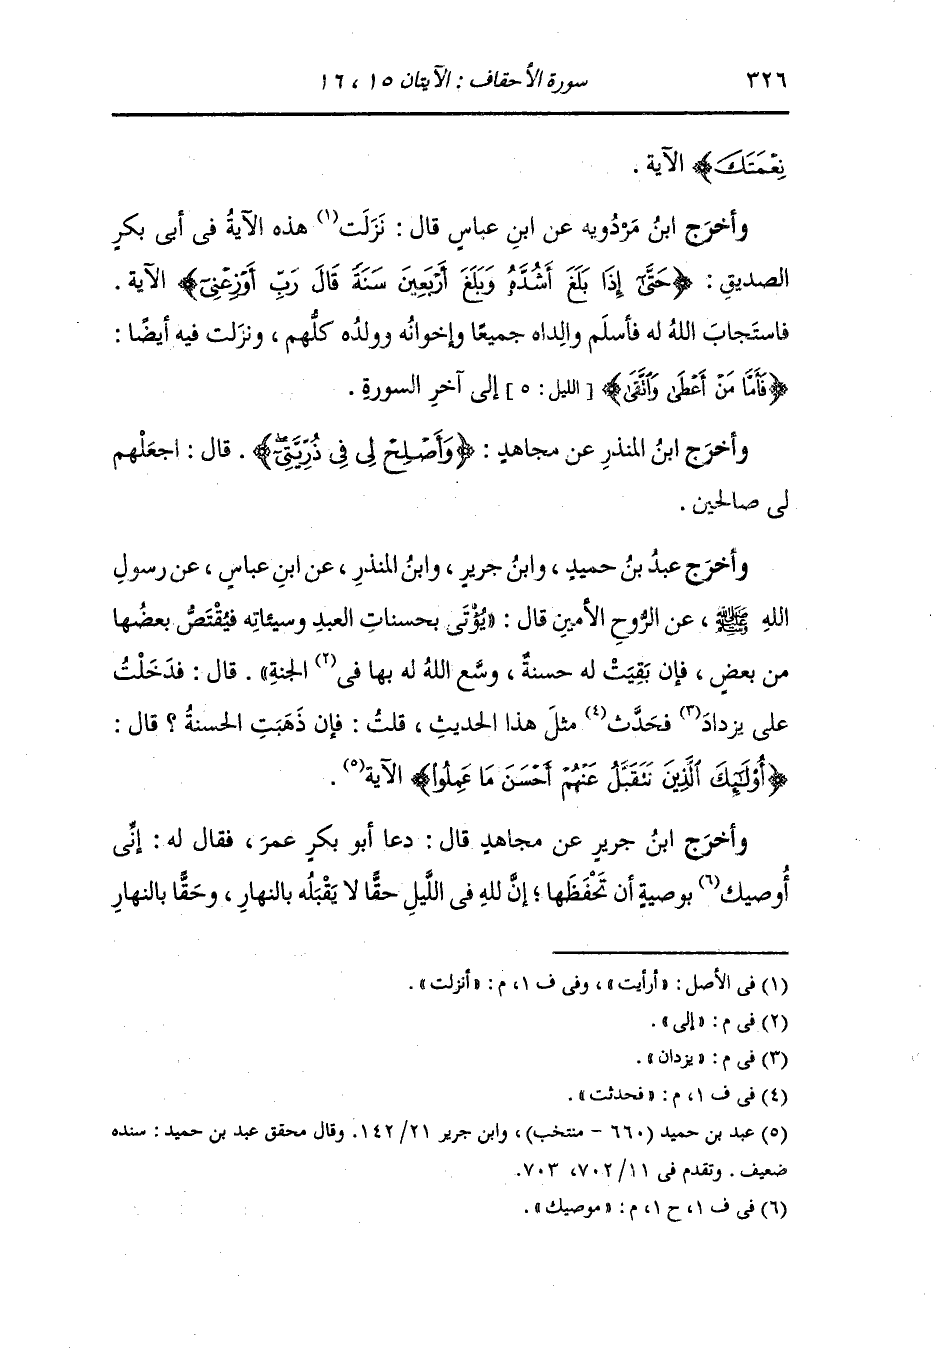 ٣٢٦ سورة الأحقاف : الآيتان ١٥ ، ١٦
نِعْمَتَكَ﴾ الآية .
وأخرَج ابنُ مَرْدُويه عن ابنِ عباسٍ قال : نَزَلَت(١) هذه الآيةُ فى أبى بكرٍ
الصديقِ : ﴿حَتَّىٰٓ إِذَا بَلَغَ أَشُدَّهُۥ وَبَلَغَ أَرْبَعِينَ سَنَةً قَالَ رَبِّ أَوْزِعْنِىٓ﴾ الآية .
فاستَجابَ اللهُ له فأسلَم والِداه جميعًا وإخوانُه وولدُه كلُّهم ، ونزَلت فيه أيضًا :
﴿فَأَمَّا مَنْ أَعْطَىٰ وَٱتَّقَىٰ﴾ [ الليل : ٥ ] إلى آخرِ السورةِ .
وأخرَج ابنُ المنذرِ عن مجاهدٍ : ﴿وَأَصْلِحْ لِى فِى ذُرِّيَّتِىٓۖ﴾ . قال : اجعَلْهم
لى صالحين .
وأخرَج عبدُ بنُ حميدٍ ، وابنُ جريرٍ ، وابنُ المنذرِ ، عن ابنِ عباسٍ ، عن رسولِ
اللهِ ﷺ ، عن الرُّوحِ الأمينِ قال : «يُؤْتَى بحسناتِ العبدِ وسيئاتِه فيُقْتَصُّ بعضُها
من بعضٍ ، فإن بَقِيَتْ له حسنةٌ ، وسَّع اللهُ له بها فى(٢) الجنةِ» . قال : فدَخَلْتُ
على يزدادَ(٣) فحَدَّث(٤) مثلَ هذا الحديثِ ، قلتُ : فإن ذَهَبَتِ الحسنةُ ؟ قال :
﴿أُوْلَٰٓئِكَ ٱلَّذِينَ نَتَقَبَّلُ عَنْهُمْ أَحْسَنَ مَا عَمِلُوا۟﴾ الآية(٥) .
وأخرَج ابنُ جريرٍ عن مجاهدٍ قال : دعا أبو بكرٍ عمرَ ، فقال له : إنِّى
أُوصيك(٦) بوصيةٍ أن تَحْفَظَها ؛ إنَّ للهِ فى اللَّيلِ حقًّا لا يَقْبَلُه بالنهارِ ، وحَقًّا بالنهارِ
(١) فى الأصل : «أرأيت» ، وفى ف ١، م : «أنزلت» .
(٢) فى م : «إلى» .
(٣) فى م : «يزدان» .
(٤) فى ف ١، م : «فحدثت» .
(٥) عبد بن حميد (٦٦٠ - منتخب) ، وابن جرير ٢١/ ١٤٢. وقال محقق عبد بن حميد : سنده
ضعيف . وتقدم فى ١١/ ٧٠٢، ٧٠٣.
(٦) فى ف ١، ح ١، م : «موصيك» .